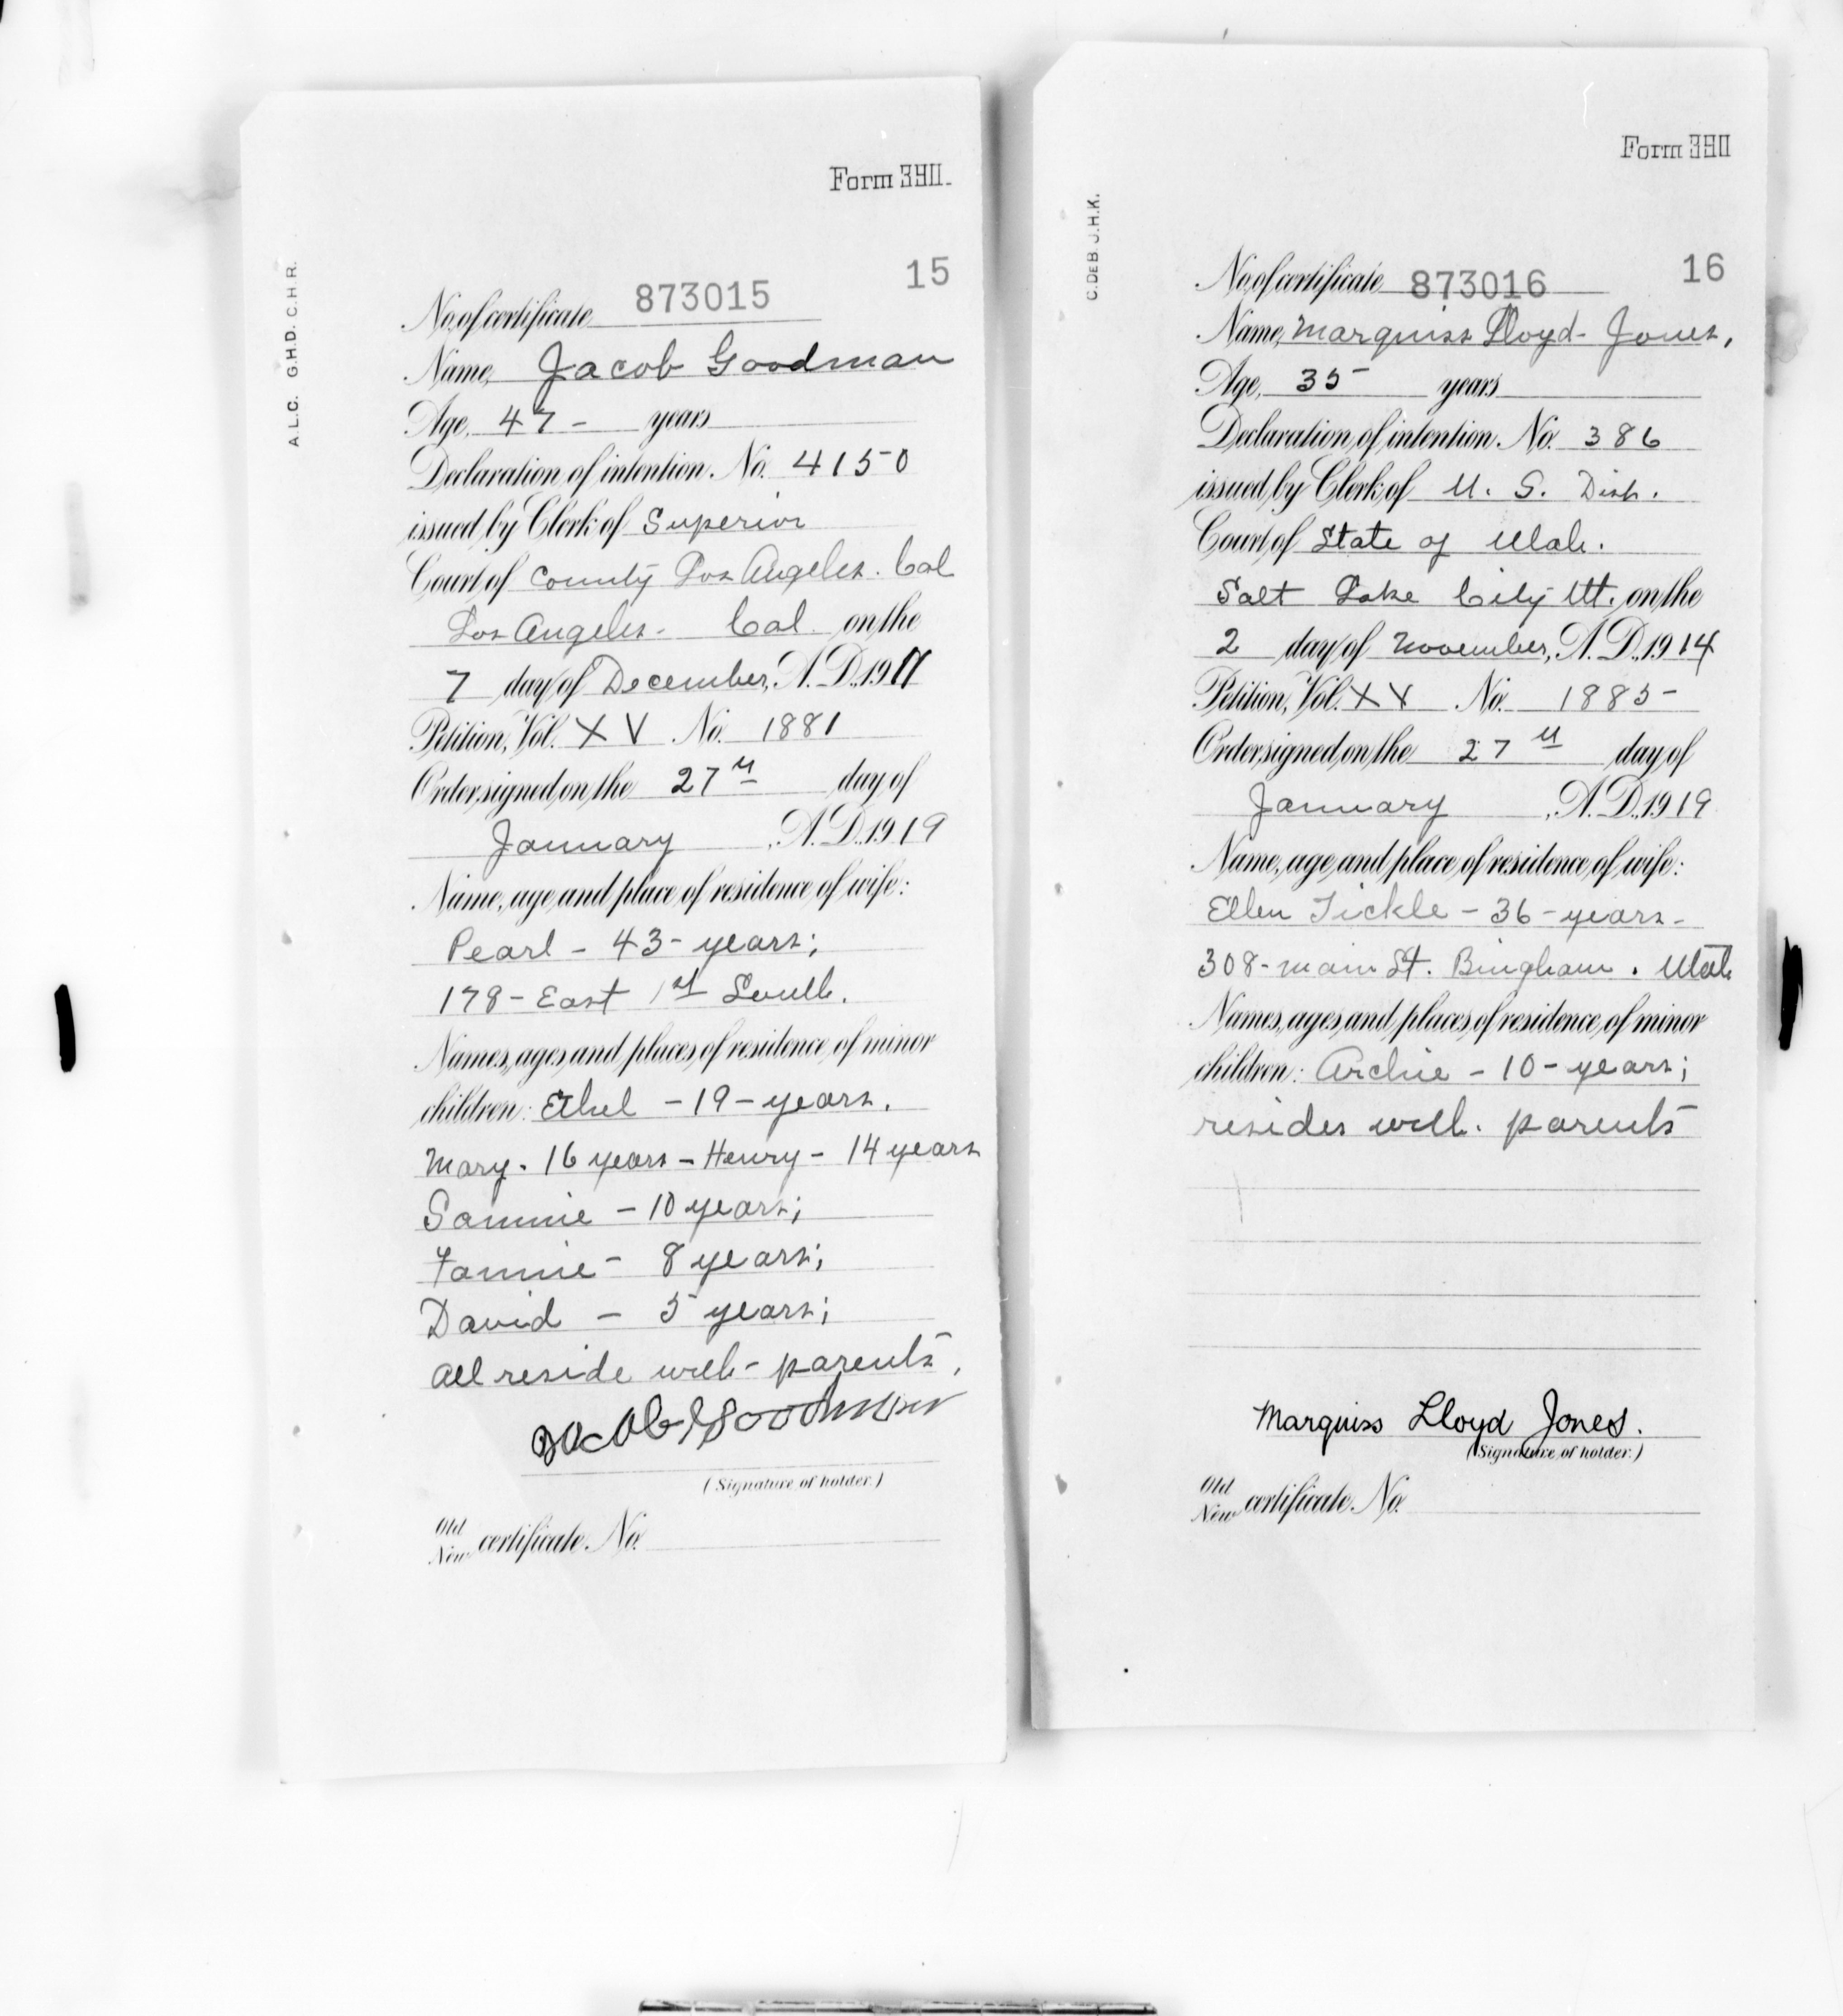 Form 390.
A.L.C. G.H.D. C.H.R.
15
No. of certificate 873015
Name, Jacob Goodman
Age, 47 - years
Declaration of intention, No. 4150
issued by Clerk of Superior
Court of County Los Angeles. Cal
Los Angeles - Cal. on the
7 day of December, A.D. 1911
Petition, Vol. XV No. 1881
Order signed on the 27th day of
January, A.D. 1919
Name, age and place of residence of wife:
Pearl - 43 - years;
178 - East 1st South.
Names, ages and places of residence of minor
children: Ethel - 19 - years.
Mary - 16 years - Henry - 14 years
Sammie - 10 years;
Fannie - 8 years;
David - 5 years;
All reside with - parents.
Jacob Goodman
(Signature of holder.)
Old
New certificate No.
Form 390
C.DEB. J.H.K.
16
No. of certificate 873016
Name, Marquiss Lloyd - Jones,
Age, 35 years
Declaration of intention, No. 386
issued by Clerk of U. S. Dist.
Court of State of Utah.
Salt Lake City Ut. on the
2 day of November, A.D. 1914
Petition, Vol. XV No. 1885 -
Order signed on the 27th day of
January, A.D. 1919
Name, age and place of residence of wife:
Ellen Tickle - 36 - years -
308 - Main St. Bingham. Utah
Names, ages and places of residence of minor
children: Archie - 10 - years;
resides with. parents
Marquiss Lloyd Jones.
(Signature of holder.)
Old
New certificate No.